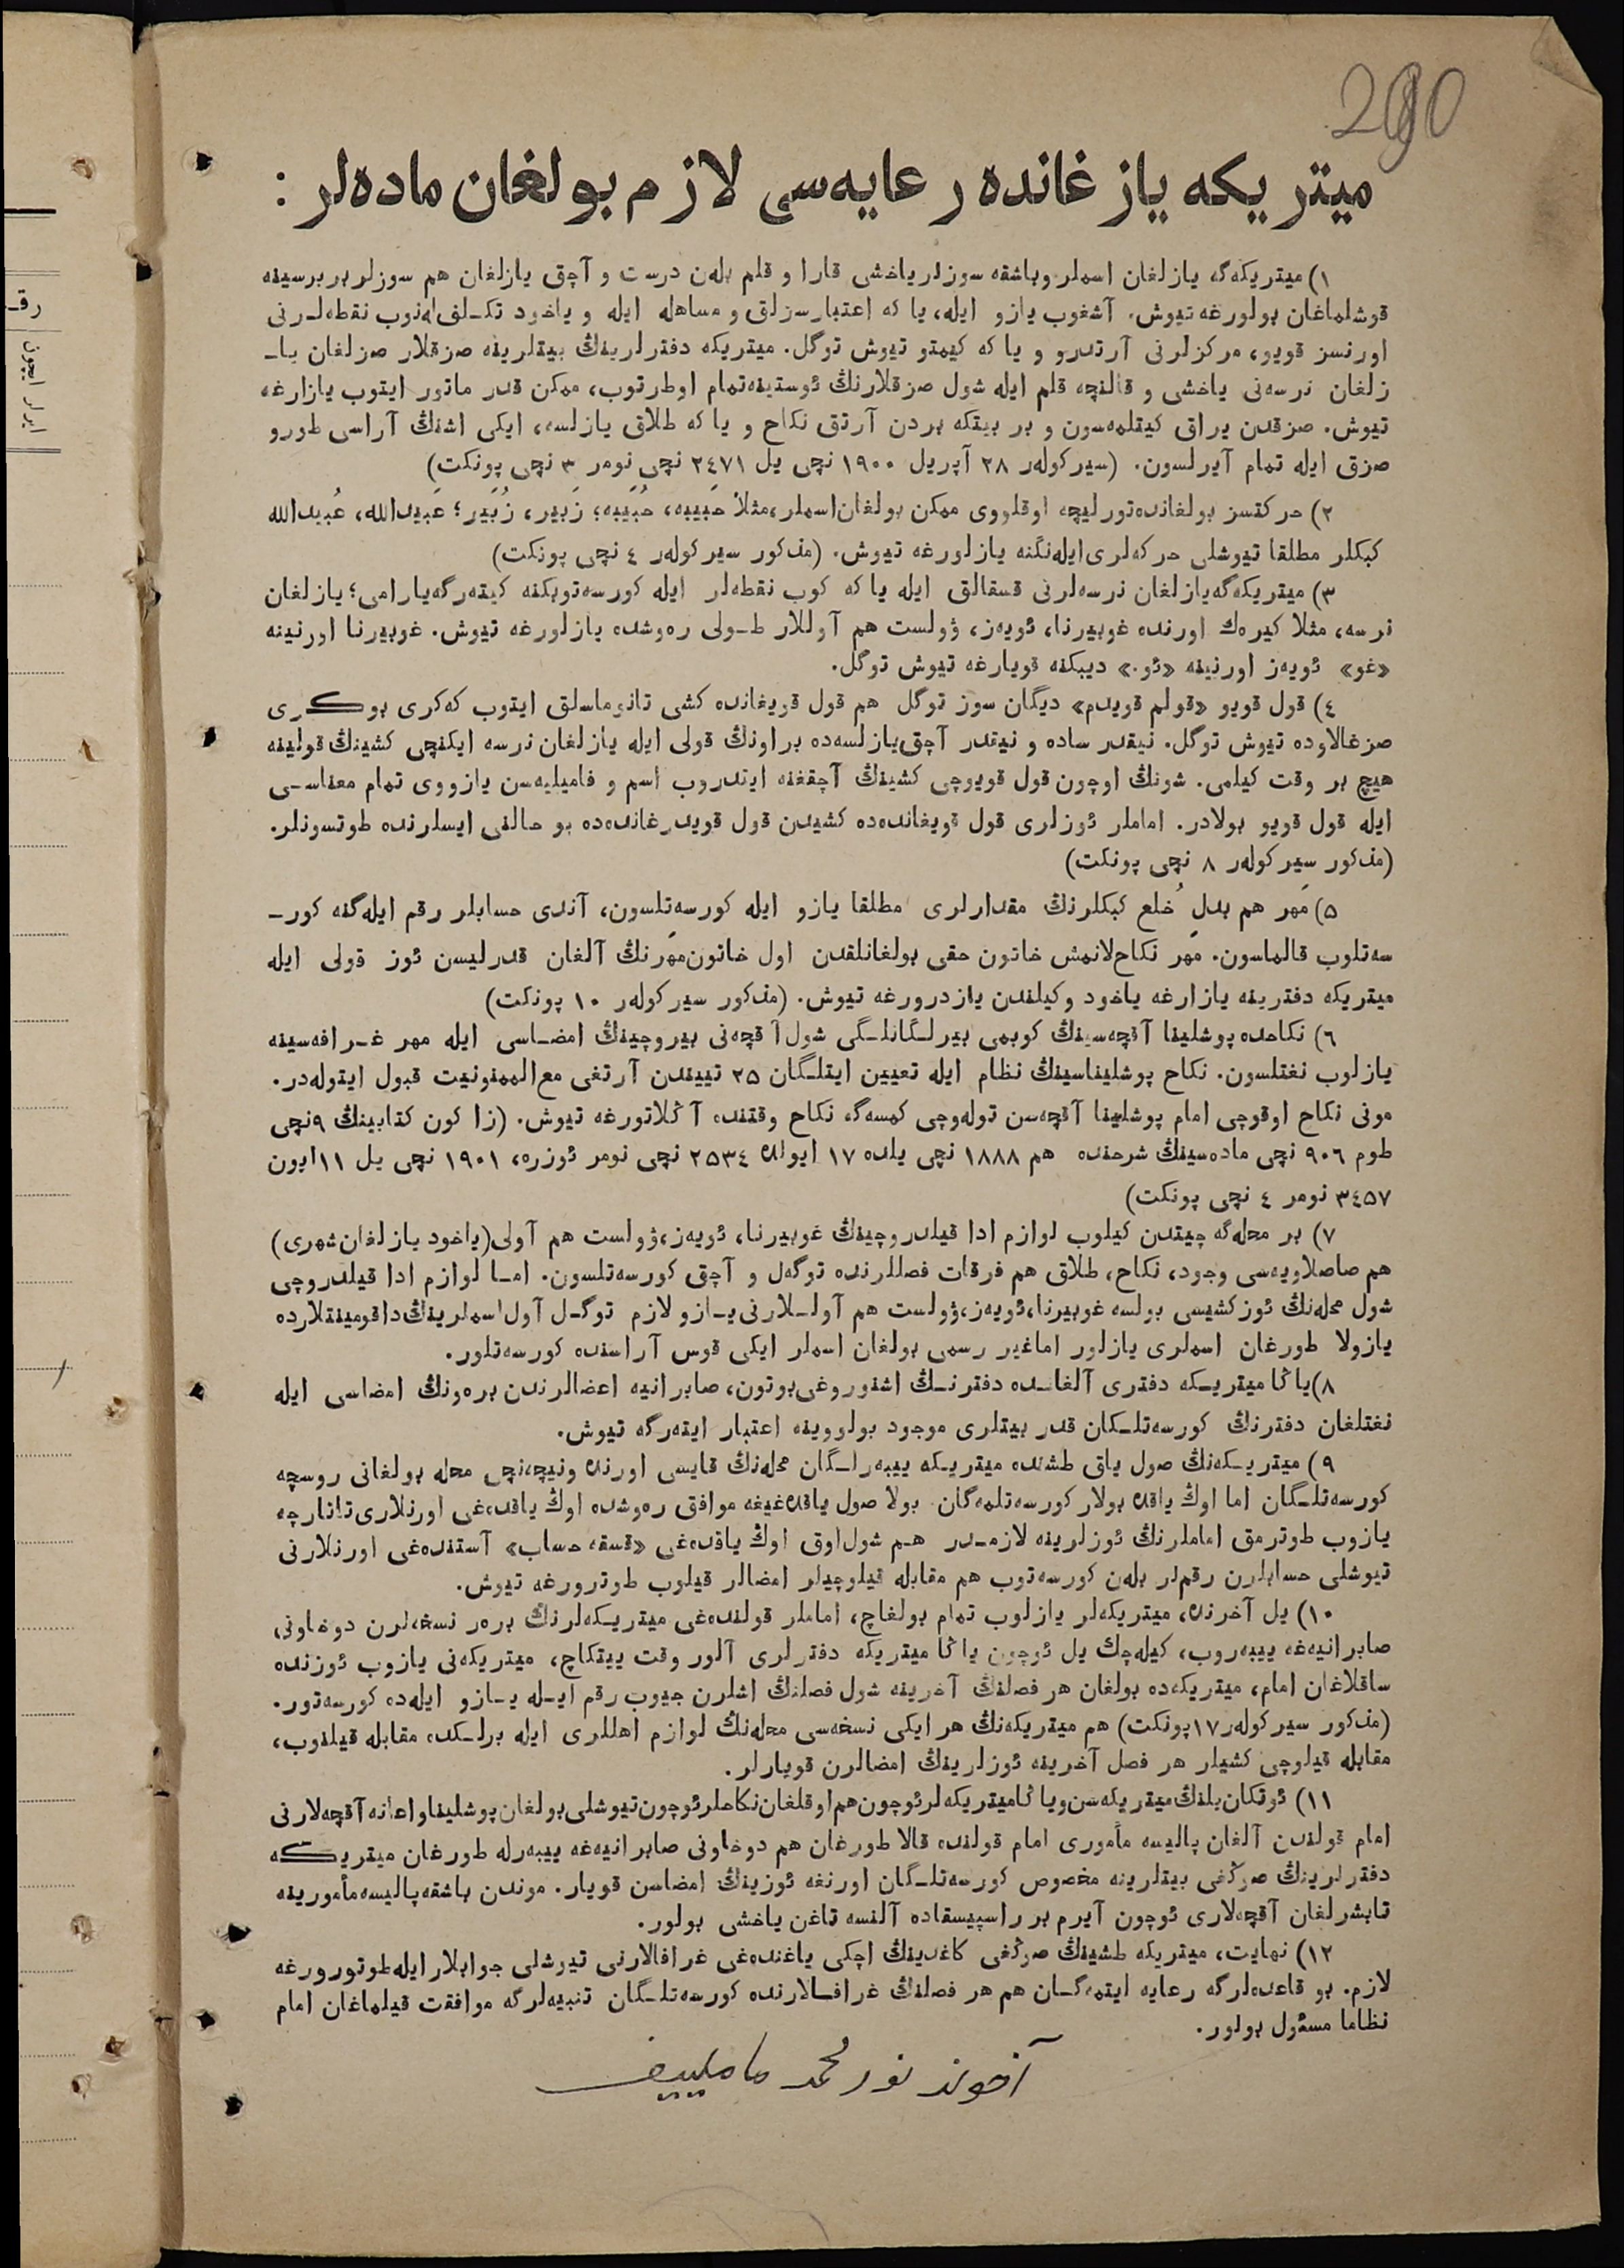 290
ميتريكه يازغانده رعايه‌سى لازم بولغان ماده‌لر :
١) ميتريكه‌گه يازلغان اسملر وباشقه سوزلر ياخشى قارا و قلم بلەن درست و آچق يازلغان هم سوزلر بربرسينه
قوشلماغان بولورغه تيوش. آشغوب يازو ايله، يا كه اعتبارسزلق و مساهله ايله و ياخود تكـلف‌لەنوب نقطه‌لـرنى
اورنسز قويو، مركزلرنى آرتدرو و يا كه كيمتو تيوش توگل. ميتريكه دفترلرينڭ بيتلرينه صزقلار صزلغان يا-
زلغان نرسه‌نى ياخشى و قالنچه قلم ايله شول صزقلارنڭ ئوستينه تمام اوطرتوب، ممكن قدر ماتور ايتوب يازارغه
تيوش. صزقدن يراق كيتلمەسون و بر بيتكه بردن آرتق نكاح و يا كه طلاق يازلسه، ايكى اشنڭ آراسى طورو
صزق ايله تمام آيرلسون. (سيركولەر ٢٨ آپريل ١٩٠٠ نچى يل ٢٤٧١ نچى نومر ٣ نچى پونكت)
٢) حركتسز بولغانده تورليچه اوقلووى ممكن بولغان اسملر، مثلا حَبيبه، حُبَيبه؛ زَبير، زُبَير؛ عَبيدالله، عُبيدالله
كبكلر مطلقا تيوشلى حركه‌لرى ايله‌نگنه يازلورغه تيوش. (مذكور سيركولەر ٤ نچى پونكت)
٣) ميتريكه‌گه يازلغان نرسه‌لرنى قسقالق ايله يا كه كوب نقطه‌لر ايله كورسه‌توبكنه كيتەرگه يارامى؛ يازلغان
نرسه، مثلا كيرەك اورنده غوبيرنا، ئويەز، ۋولست هم آوللار طـولى رەوشده يازلورغه تيوش. غوبيرنا اورنينه
«غو» ئويەز اورنينه «ئو.» ديبكنه قويارغه تيوش توگل.
٤) قول قويو «قولم قويدم» ديگان سوز توگل هم قول قويغانده كشى تانوماسلق ايتوب كەكرى بوكـرى
صزغالاوده تيوش توگل. نيقدر ساده و نيقدر آچق يازلسەده براونڭ قولى ايله يازلغان نرسه ايكنچى كشينڭ قولينه
هيچ بر وقت كيلمى. شونڭ اوچون قول قويوچى كشينڭ آچقغنه ايتدروب اسم و فاميليەسن يازووى تمام معناسـى
ايله قول قويو بولادر. اماملر ئوزلرى قول قويغاندەده كشيدن قول قويدرغاندەده بو حالنى ايسلرنده طوتسونلر.
(مذكور سيركولەر ٨ نچى پونكت)
٥) مَهر هم بدلِ خُلع كبكلرنڭ مقدارلرى مطلقا يازو ايله كورسه‌تلسون، آندى حسابلر رقم ايله‌گنه كور-
سه‌تلوب قالماسون. مَهر نكاح‌لانمش خاتون حقى بولغانلقدن اول خاتون مَهرنڭ آلغان قدرليسن ئوز قولى ايله
ميتريكه دفترينه يازارغه ياخود وكيلندن يازدرورغه تيوش. (مذكور سيركولەر ١٠ پونكت)
٦) نكاحده پوشلينا آقچه‌سينڭ كوبمى بيرلگانلـگى شول آقچه‌نى بيروچينڭ امضـاسى ايله مهر غـرافه‌سينه
يازلوب نغتلسون. نكاح پوشليناسينڭ نظام ايله تعيين ايتلـگان ٢٥ تييندن آرتغى مع‌الممنونيت قبول ايتولەدر.
مونى نكاح اوقوچى امام پوشلينا آقچه‌سن تولەوچى كمسه‌گه نكاح وقتنده آڭلاتورغه تيوش. (زاكون كتابينڭ ٩نچى
طوم ٩٠٦ نچى ماده‌سينڭ شرحنده هم ١٨٨٨ نچى يلده ١٧ ايولده ٢٥٣٤ نچى نومر ئوزره، ١٩٠١ نچى يل ١١ايون
٣٤٥٧ نومر ٤ نچى پونكت)
٧) بر محله‌گه چيتدن كيلوب لوازم ادا قيلدروچينڭ غوبيرنا، ئويەز، ۋولست هم آولى (ياخود يازلغان شهرى)
هم صاصلاويەسى وجود، نكاح، طلاق هم فرقات فصللرنده توگەل و آچق كورسه‌تلسون. امـا لوازم ادا قيلدروچى
شول محله‌نڭ ئوز كشيسى بولسه غوبيرنا، ئويەز، ۋولست هم آولـلارنى يـازو لازم توگـل آول اسملرينڭ داقومينتلارده
يازولا طورغان اسملرى يازلور اماغير رسمى بولغان اسملر ايكى قوس آراسنده كورسه‌تلور.
٨) ياڭا ميتريـكه دفترى آلغانـده دفترنـڭ اشنوروغى بوتون، صابرانيه اعضالرندن برەونڭ امضاسى ايله
نغتلغان دفترنڭ كورسه‌تلـكان قدر بيتلرى موجود بولووينه اعتبار ايتەرگه تيوش.
٩) ميتريـكه‌نڭ صول ياق طشنده ميتريكه ييبەرلـگان محله‌نڭ قايسى اورنده ونيچەنچى محله بولغانى روسچه
كورسه‌تلـگان اما اوڭ ياقده بولار كورسه‌تلمەگان. بولا صول ياقده‌غيغه موافق رەوشده اوڭ ياقده‌غى اورنلارى تاتارچه
يازوب طوترمق اماملرنڭ ئوزلرينه لازمـدر هـم شول اوق اوڭ ياقده‌غى «قسقه حساب» آستنده‌غى اورنلارنى
تيوشلى حسابلرن رقملر بلەن كورسه‌توب هم مقابله قيلوچيلر امضالر قيلوب طوترورغه تيوش.
١٠) يل آخرنده، ميتريكه‌لر يازلوب تمام بولغاچ، اماملر قولنده‌غى ميتريـكه‌لرنڭ برەر نسخه‌لرن دوخاونى
صابرانيه‌غه ييبەروب، كيلەچك يل ئوچون ياڭا ميتريكه دفترلرى آلور وقت ييتكاچ، ميتريكه‌نى يازوب ئوزنده
ساقلاغان امام، ميتريكه‌ده بولغان هر فصلنڭ آخرينه شول فصلنڭ اشلرن جيوب رقم ايـله يـازو ايله‌ده كورسه‌تور.
(مذكور سيركولەر ١٧پونكت) هم ميتريكه‌نڭ هر ايكى نسخه‌سى محله‌نڭ لوازم اهللرى ايله برلـكده مقابله قيلنوب،
مقابله قيلوچى كشيلر هر فصل آخرينه ئوزلرينڭ امضالرن قويارلر.
١١) ئوتكان يلنڭ ميتريكه‌سن وياڭا ميتريكه‌لر ئوچون هم اوقلغان نكاحلر ئوچون تيوشلى بولغان پوشلينا و اعانه آقچه‌لارنى
امام قولندن آلغان پاليسه مأمورى امام قولنده قالا طورغان هم دوخاونى صابرانيه‌غه ييبەرله طورغان ميتريكـه
دفترلرينڭ صوڭغى بيتلرينه مخصوص كورسه‌تلـگان اورنغه ئوزينڭ امضاسن قويار. موندن باشقه پاليسه مأمورينه
تابشرلغان آقچه‌لارى ئوچون آيرم بر راسپيسقاده آلنسه تاغن ياخشى بولور.
١٢) نهايت، ميتريكه طشينڭ صوڭغى كاغدينڭ اچكى ياغنده‌غى غرافالارنى تيوشلى جوابلار ايله طوتورورغه
لازم. بو قاعده‌لرگه رعايه ايتمەگـان هم هر فصلنڭ غرافـالارنده كورسه‌تلـگان تنبيه‌لرگه موافقت قيلماغان امام
نظاما مسئول بولور.
آخوند نور محمد مامليیف